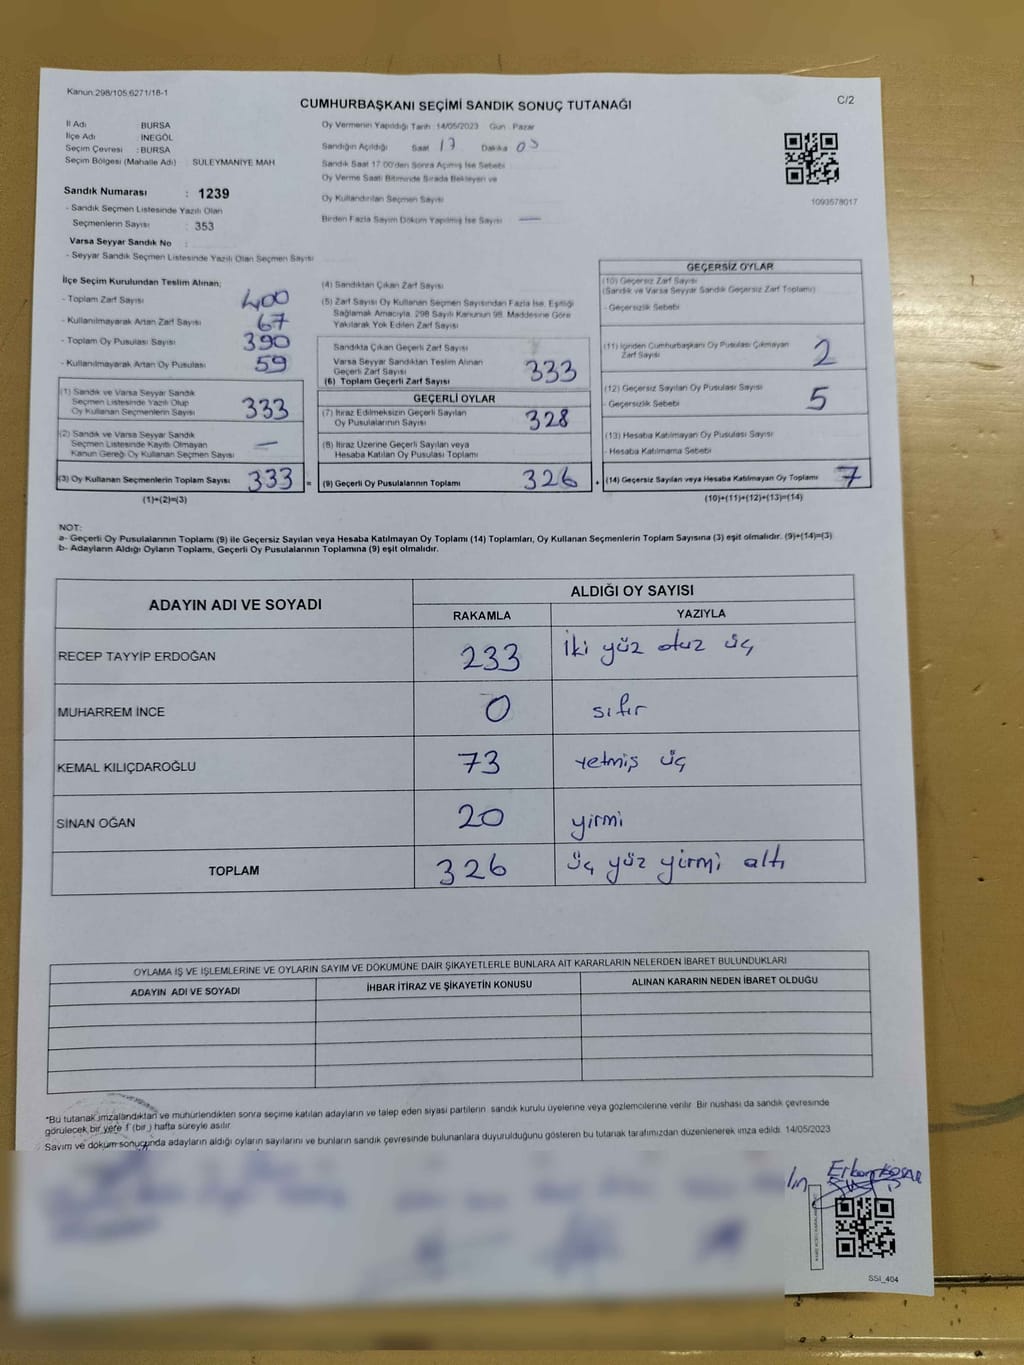 Kanun 298/105 6271/18-1
CUMHURBAŞKANI SEÇİMİ SANDIK SONUÇ TUTANAĞI
C/2
İl Adı BURSA
İlçe Adı İNEGÖL
Seçim Çevresi : BURSA
Seçim Bölgesi (Mahalle Adı) : SÜLEYMANİYE MAH
Sandık Numarası : 1239
- Sandık Seçmen Listesinde Yazılı Olan
Seçmenlerin Sayısı : 353
Varsa Seyyar Sandık No :
- Seyyar Sandık Seçmen Listesinde Yazılı Olan Seçmen Sayısı
Oy Vermenin Yapıldığı Tarih :14/05/2023 Gün : Pazar
Sandığın Açıldığı Saat 17 Dakika 05
Sandık Saat 17 00'den Sonra Açılmış İse Sebebi
Oy Verme Saati Bitiminde Sırada Bekleyen ve
Oy Kullandırılan Seçmen Sayısı
Birden Fazla Sayım Döküm Yapılmış İse Sayısı —
1093578017
İlçe Seçim Kurulundan Teslim Alınan;
- Toplam Zarf Sayısı 400
- Kullanılmayarak Artan Zarf Sayısı 67
- Toplam Oy Pusulası Sayısı 390
- Kullanılmayarak Artan Oy Pusulası 59
(1) Sandık ve Varsa Seyyar Sandık
Seçmen Listesinde Yazılı Olup
Oy Kullanan Seçmenlerin Sayısı 333
(2) Sandık ve Varsa Seyyar Sandık
Seçmen Listesinde Kayıtlı Olmayan
Kanun Gereği Oy Kullanan Seçmen Sayısı —
(3) Oy Kullanan Seçmenlerin Toplam Sayısı 333 =
(1)+(2)=(3)
(4) Sandıktan Çıkan Zarf Sayısı
(5) Zarf Sayısı Oy Kullanan Seçmen Sayısından Fazla İse, Eşitliği
Sağlamak Amacıyla, 298 Sayılı Kanunun 98. Maddesine Göre
Yakılarak Yok Edilen Zarf Sayısı
Sandıkta Çıkan Geçerli Zarf Sayısı
Varsa Seyyar Sandıktan Teslim Alınan
Geçerli Zarf Sayısı
(6) Toplam Geçerli Zarf Sayısı 333
GEÇERLİ OYLAR
(7) İtiraz Edilmeksizin Geçerli Sayılan
Oy Pusulalarının Sayısı 328
(8) İtiraz Üzerine Geçerli Sayılan veya
Hesaba Katılan Oy Pusulası Toplamı
(9) Geçerli Oy Pusulalarının Toplamı 326 +
GEÇERSİZ OYLAR
(10) Geçersiz Zarf Sayısı
(Sandık ve Varsa Seyyar Sandık Geçersiz Zarf Toplamı)
- Geçersizlik Sebebi
(11) İçinden Cumhurbaşkanı Oy Pusulası Çıkmayan
Zarf Sayısı 2
(12) Geçersiz Sayılan Oy Pusulası Sayısı
- Geçersizlik Sebebi 5
(13) Hesaba Katılmayan Oy Pusulası Sayısı
- Hesaba Katılmama Sebebi
(14) Geçersiz Sayılan veya Hesaba Katılmayan Oy Toplamı 7
(10)+(11)+(12)+(13)=(14)
NOT:
a- Geçerli Oy Pusulalarının Toplamı (9) ile Geçersiz Sayılan veya Hesaba Katılmayan Oy Toplamı (14) Toplamları, Oy Kullanan Seçmenlerin Toplam Sayısına (3) eşit olmalıdır. (9)+(14)=(3)
b- Adayların Aldığı Oyların Toplamı, Geçerli Oy Pusulalarının Toplamına (9) eşit olmalıdır.
ADAYIN ADI VE SOYADI ALDIĞI OY SAYISI
RAKAMLA YAZIYLA
RECEP TAYYİP ERDOĞAN 233 İki yüz otuz üç
MUHARREM İNCE 0 sıfır
KEMAL KILIÇDAROĞLU 73 yetmiş üç
SİNAN OĞAN 20 yirmi
TOPLAM 326 üç yüz yirmi altı
OYLAMA İŞ VE İŞLEMLERİNE VE OYLARIN SAYIM VE DÖKÜMÜNE DAİR ŞİKAYETLERLE BUNLARA AİT KARARLARIN NELERDEN İBARET BULUNDUKLARI
ADAYIN ADI VE SOYADI İHBAR İTİRAZ VE ŞİKAYETİN KONUSU ALINAN KARARIN NEDEN İBARET OLDUĞU
*Bu tutanak imzalandıktan ve mühürlendikten sonra seçime katılan adayların ve talep eden siyasi partilerin sandık kurulu üyelerine veya gözlemcilerine verilir. Bir nüshası da sandık çevresinde
görülecek bir yere 1 (bir ) hafta süreyle asılır.
Sayım ve döküm sonucunda adayların aldığı oyların sayılarını ve bunların sandık çevresinde bulunanlara duyurulduğunu gösteren bu tutanak tarafımızdan düzenlenerek imza edildi. 14/05/2023
SSI_404